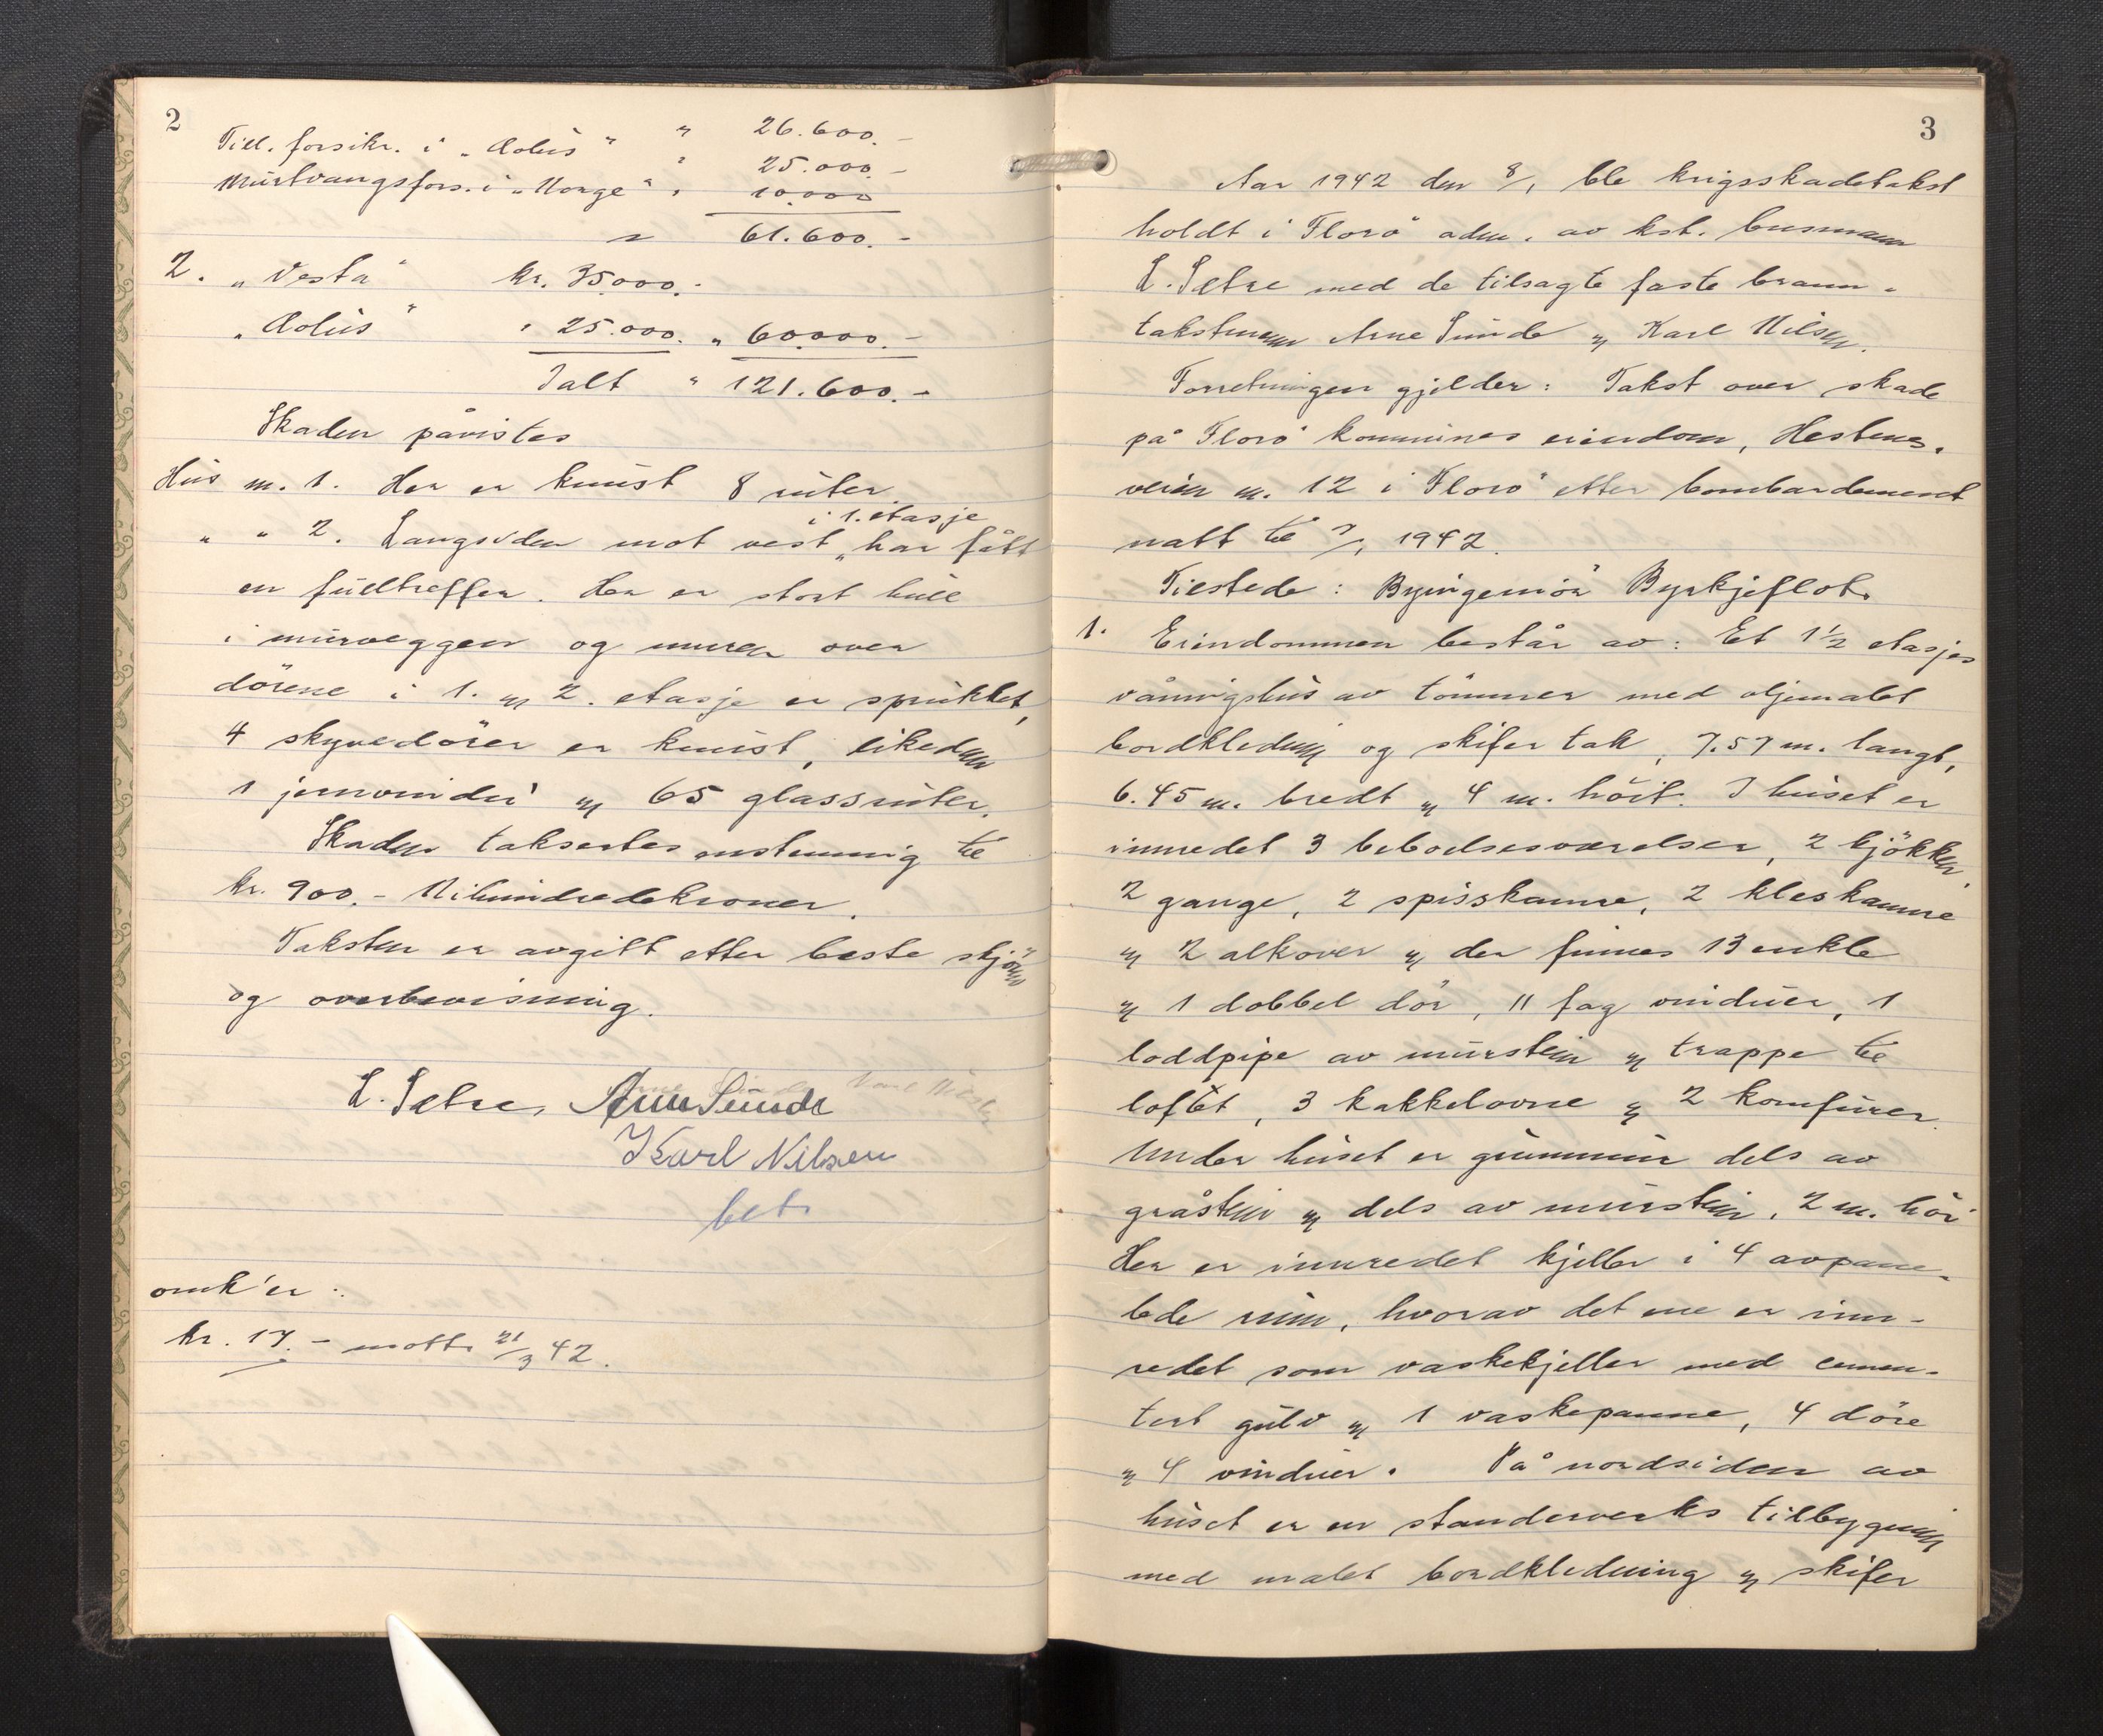 2
Till. forsikr. i „Æolus" " 26.600.-
Murtvangsfors. i „Norge" " 25.000.-
10.000
" 61.600.-
2. „Vesta" kr. 35000.-
„Æolus" " 25.000. " 60.000.-
Ialt " 121.600.-
Skaden påvistes
Hus nr. 1. Her er knust 8 ruter.
i 1. etasje
" " 2. Langsiden mot vest „ har fått
en fulltreffer. Her er stort hull
i murveggen og muren over
dörene i 1. og 2. etasje er sprukket,
4 skyvedörer er knust, likeden
1 jernvindu og 65 glassruter.
Skaden taksertes enstemmig til
kr. 900.- Nihundredekroner.
Taksten er avgitt etter beste skjönn
og overbevisning.
L. Sætre, Arne Sunde
Karl Nilsen
bet.
omk'er:
kr. 17.- mott. 21/3 42.
3
Aar 1942 den 8/1 ble krigsskadetakst
holdt i Florö adm. av kst. busmann
L. Sætre med de tilsagte faste brann-
takstmenn Arne Sunde og Karl Nilsen.
Forretningen gjelder: Takst over skade
på Florö kommunes eiendom, Hestenes-
veien nr. 12 i Florö etter bombardement
natt til 7/1 1942.
Tilstede: Byingeniör Byrkjeflot.
1. Eiendommen består av: Et 1½ etasjes
våningshus av tömmer med oljemalet
bordkledning og skifer tak, 7.57 m. langt,
6.45 m. bredt og 4 m. höit. I huset er
innredet 3 beboelsesværelser, 2 kjökken,
2 gange, 2 spisskamre, 2 kleskamre
og 2 alkover og der finnes 13 enkle
og 1 dobbel dör, 11 fag vinduer, 1
loddpipe av murstein og trappe til
loftet, 3 kakkelovne og 2 komfurer.
Under huset er grunnmur dels av
gråstein og dels av murstein, 2 m. höi
Her er innredet kjeller i 4 avpane-
lede rum, hvorav det ene er inn-
redet som vaskekjeller med cemen-
tert gulv og 1 vaskepanne, 4 döre
og 4 vinduer. På nordsiden av
huset er en standerverks tilbygning
med malet bordkledning og skifer